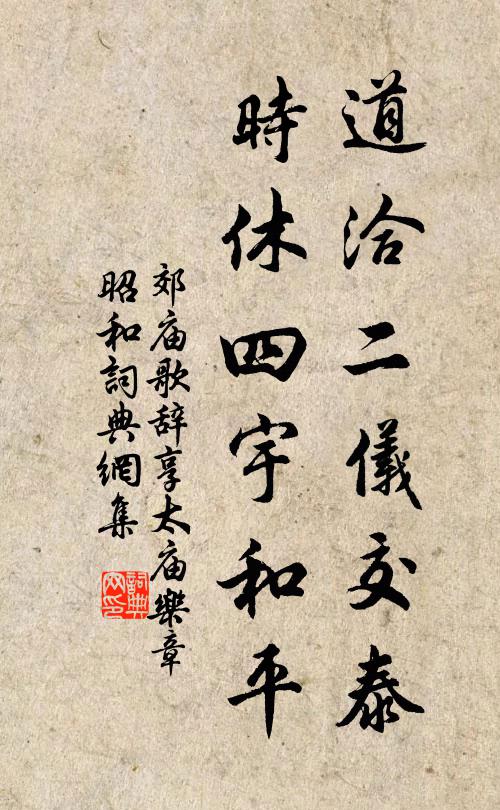 道洽二儀交泰
時休四宇和平
郊庙歌辞享太庙樂章
昭和詞典網集
詞典网印